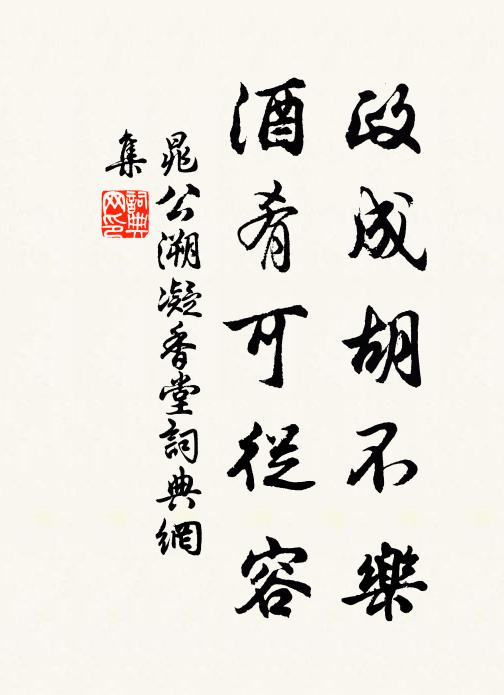 政成胡不樂
酒肴可從容
晁公溯凝香堂詞典網
集
詞典
网印